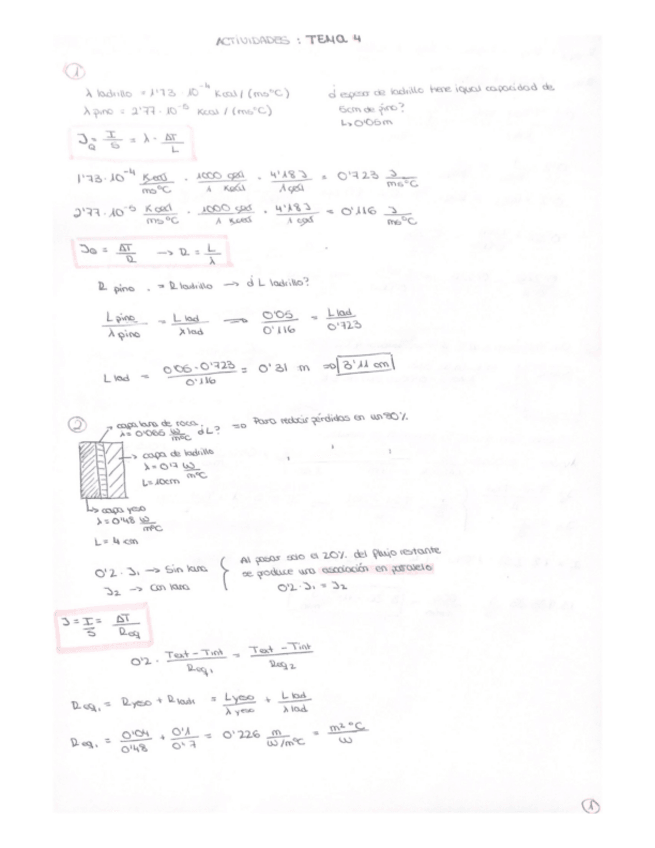 ACTIVIDADES: TEMA 4
1
λ ladrillo = 1'73 · 10⁻⁴ Kcal / (ms°C)
λ pino = 2'77 · 10⁻⁵ Kcal / (ms°C)
¿ espesor de ladrillo tiene igual capacidad de
5cm de pino?
L=0'05m
J_Q = I/S = λ · ΔT/L
1'73 · 10⁻⁴ Kcal/ms°C · 1000 cal/1 Kcal · 4'18 J/1 cal = 0'723 J/ms°C
2'77 · 10⁻⁵ Kcal/ms°C · 1000 cal/1 Kcal · 4'18 J/1 cal = 0'116 J/ms°C
J_Q = ΔT/R → R = L/λ
R pino = R ladrillo → ¿ L ladrillo?
L pino/λ pino = L lad/λ lad ⇒ 0'05/0'116 = L lad/0'723
L lad = 0'05 · 0'723/0'116 = 0'31 m ⇒ 3'11 cm
2
capa lana de roca
λ = 0'065 W/m°C ¿L? ⇒ Para reducir pérdidas en un 80%.
capa de ladrillo
λ = 0'7 W/m°C
L = 10cm
capa yeso
λ = 0'48 W/m°C
L = 4 cm
0'2 · J₁ → Sin lana
J₂ → Con lana
Al pasar solo el 20% del flujo restante
se produce una asociación en paralelo
0'2 · J₁ = J₂
J = I/S = ΔT/Req
0'2 · Text - Tint/Req₁ = Text - Tint/Req₂
Req₁ = Ryeso + Rladri = Lyeso/λ yeso + L lad/λ lad
Req₁ = 0'04/0'48 + 0'1/0'7 = 0'226 m/W/m°C = m² °C/W
1